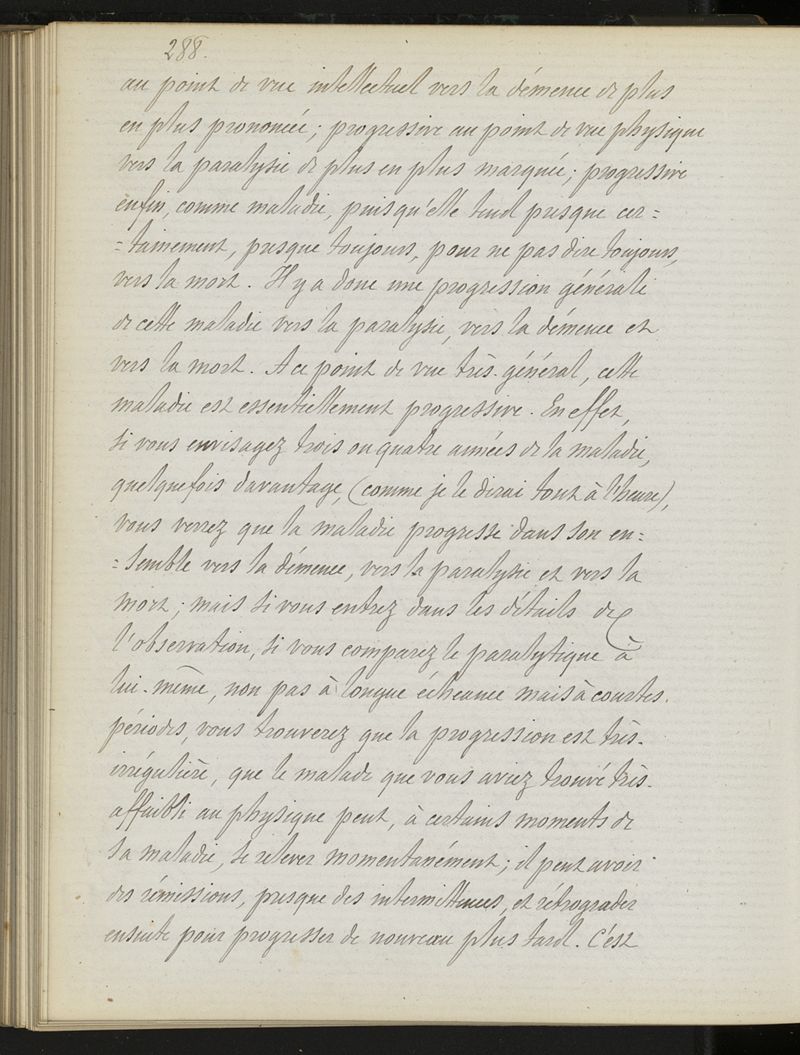 288.
au point de vue intellectuel vers la démence de plus
en plus prononcée ; progressive au point de vue physique
vers la paralysie de plus en plus marquée ; progressive
enfin, comme maladie, puisqu'elle tend presque cer=
=tainement, presque toujours, pour ne pas dire toujours,
vers la mort. Il y a donc une progression générale
de cette maladie vers la paralysie, vers la démence et
vers la mort. A ce point de vue très-général, cette
maladie est essentiellement progressive. En effet,
si vous envisagez trois ou quatre années de la maladie,
quelquefois davantage, (comme je le dirai tout à l'heure),
vous verrez que la maladie progresse dans son en=
=semble vers la démence, vers la paralysie et vers la
mort ; mais si vous entrez dans les détails de
l'observation, si vous comparez le paralytique à
lui-même, non pas à longue échéance mais à courtes
périodes, vous trouverez que la progression est très-
irrégulière, que le malade que vous aviez trouvé très-
affaibli au physique peut, à certains moments de
sa maladie, se relever momentanément ; il peut avoir
des rémissions, presque des intermittences, et rétrograder
ensuite pour progresser de nouveau plus tard. C'est